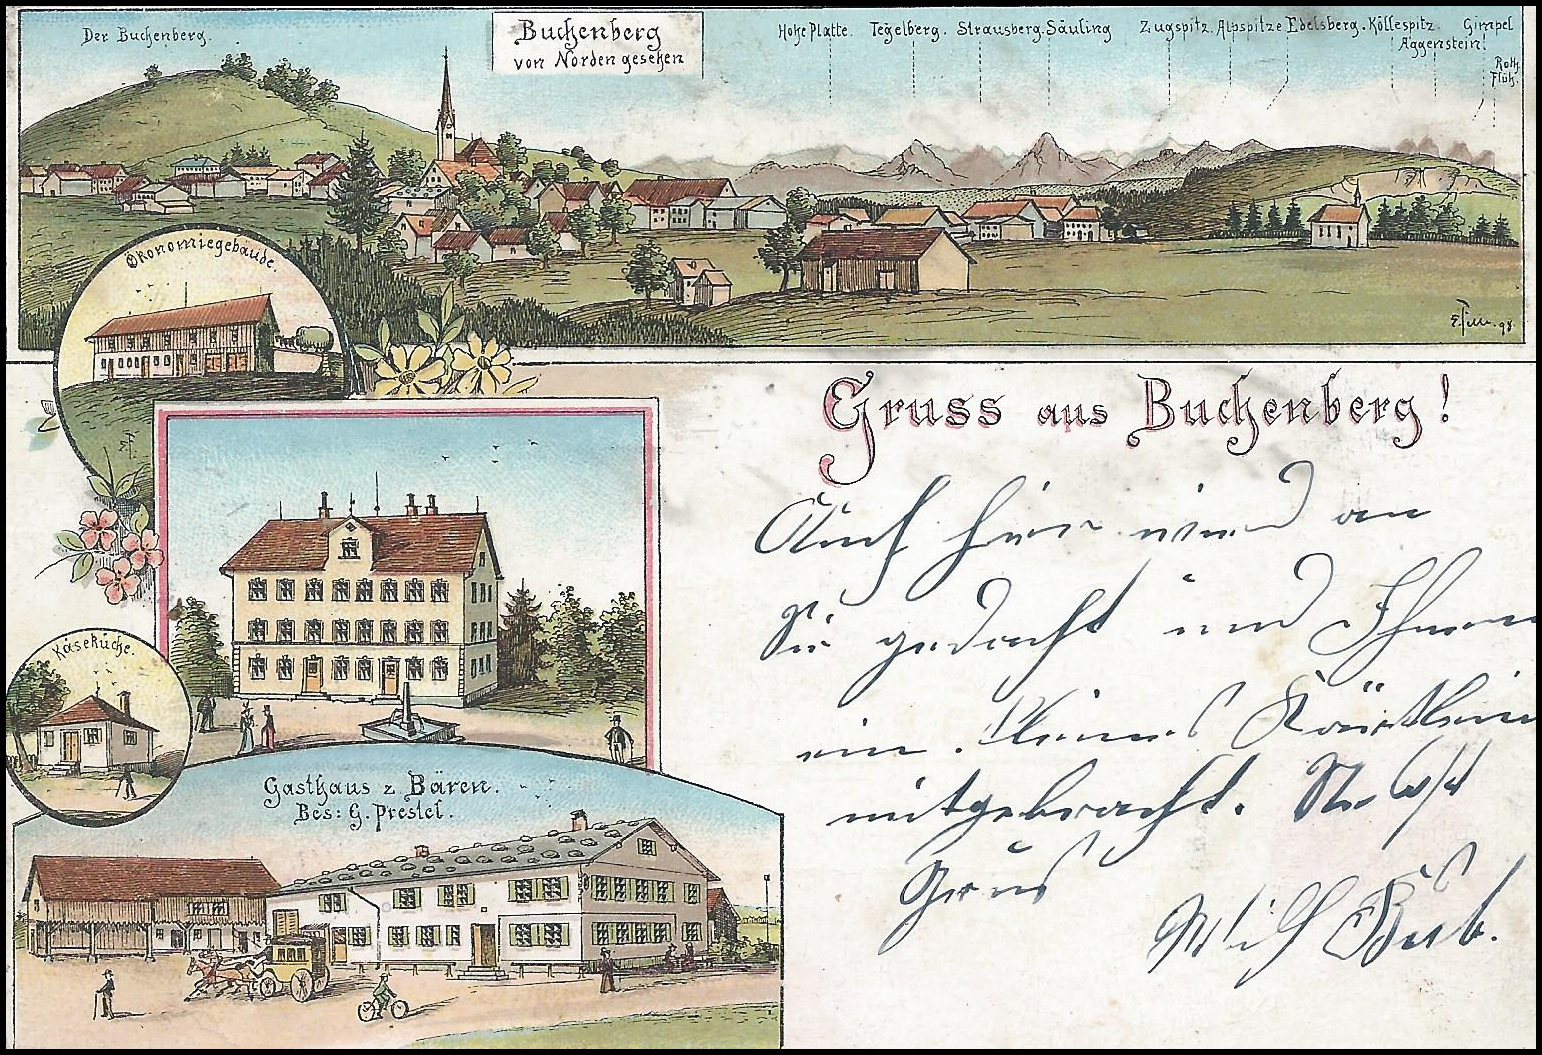 Der Buchenberg.
Buchenberg
von Norden gesehen
Hohe Platte. Tegelberg. Strausberg. Säuling Zugspitz. Alpspitze Edelsberg. Köllespitz. Gimpel
Aggenstein.
Roth
Flüh.
Ökonomiegebäude.
E. Felle. 98.
EF.
Gruss aus Buchenberg!
Auch hier wird an
Sie gedacht und Ihnen
ein kleines Kärtlein
mitgebracht. Nebst
Gruß
Käseküche.
Gasthaus z. Bären.
Bes: G. Prestel.